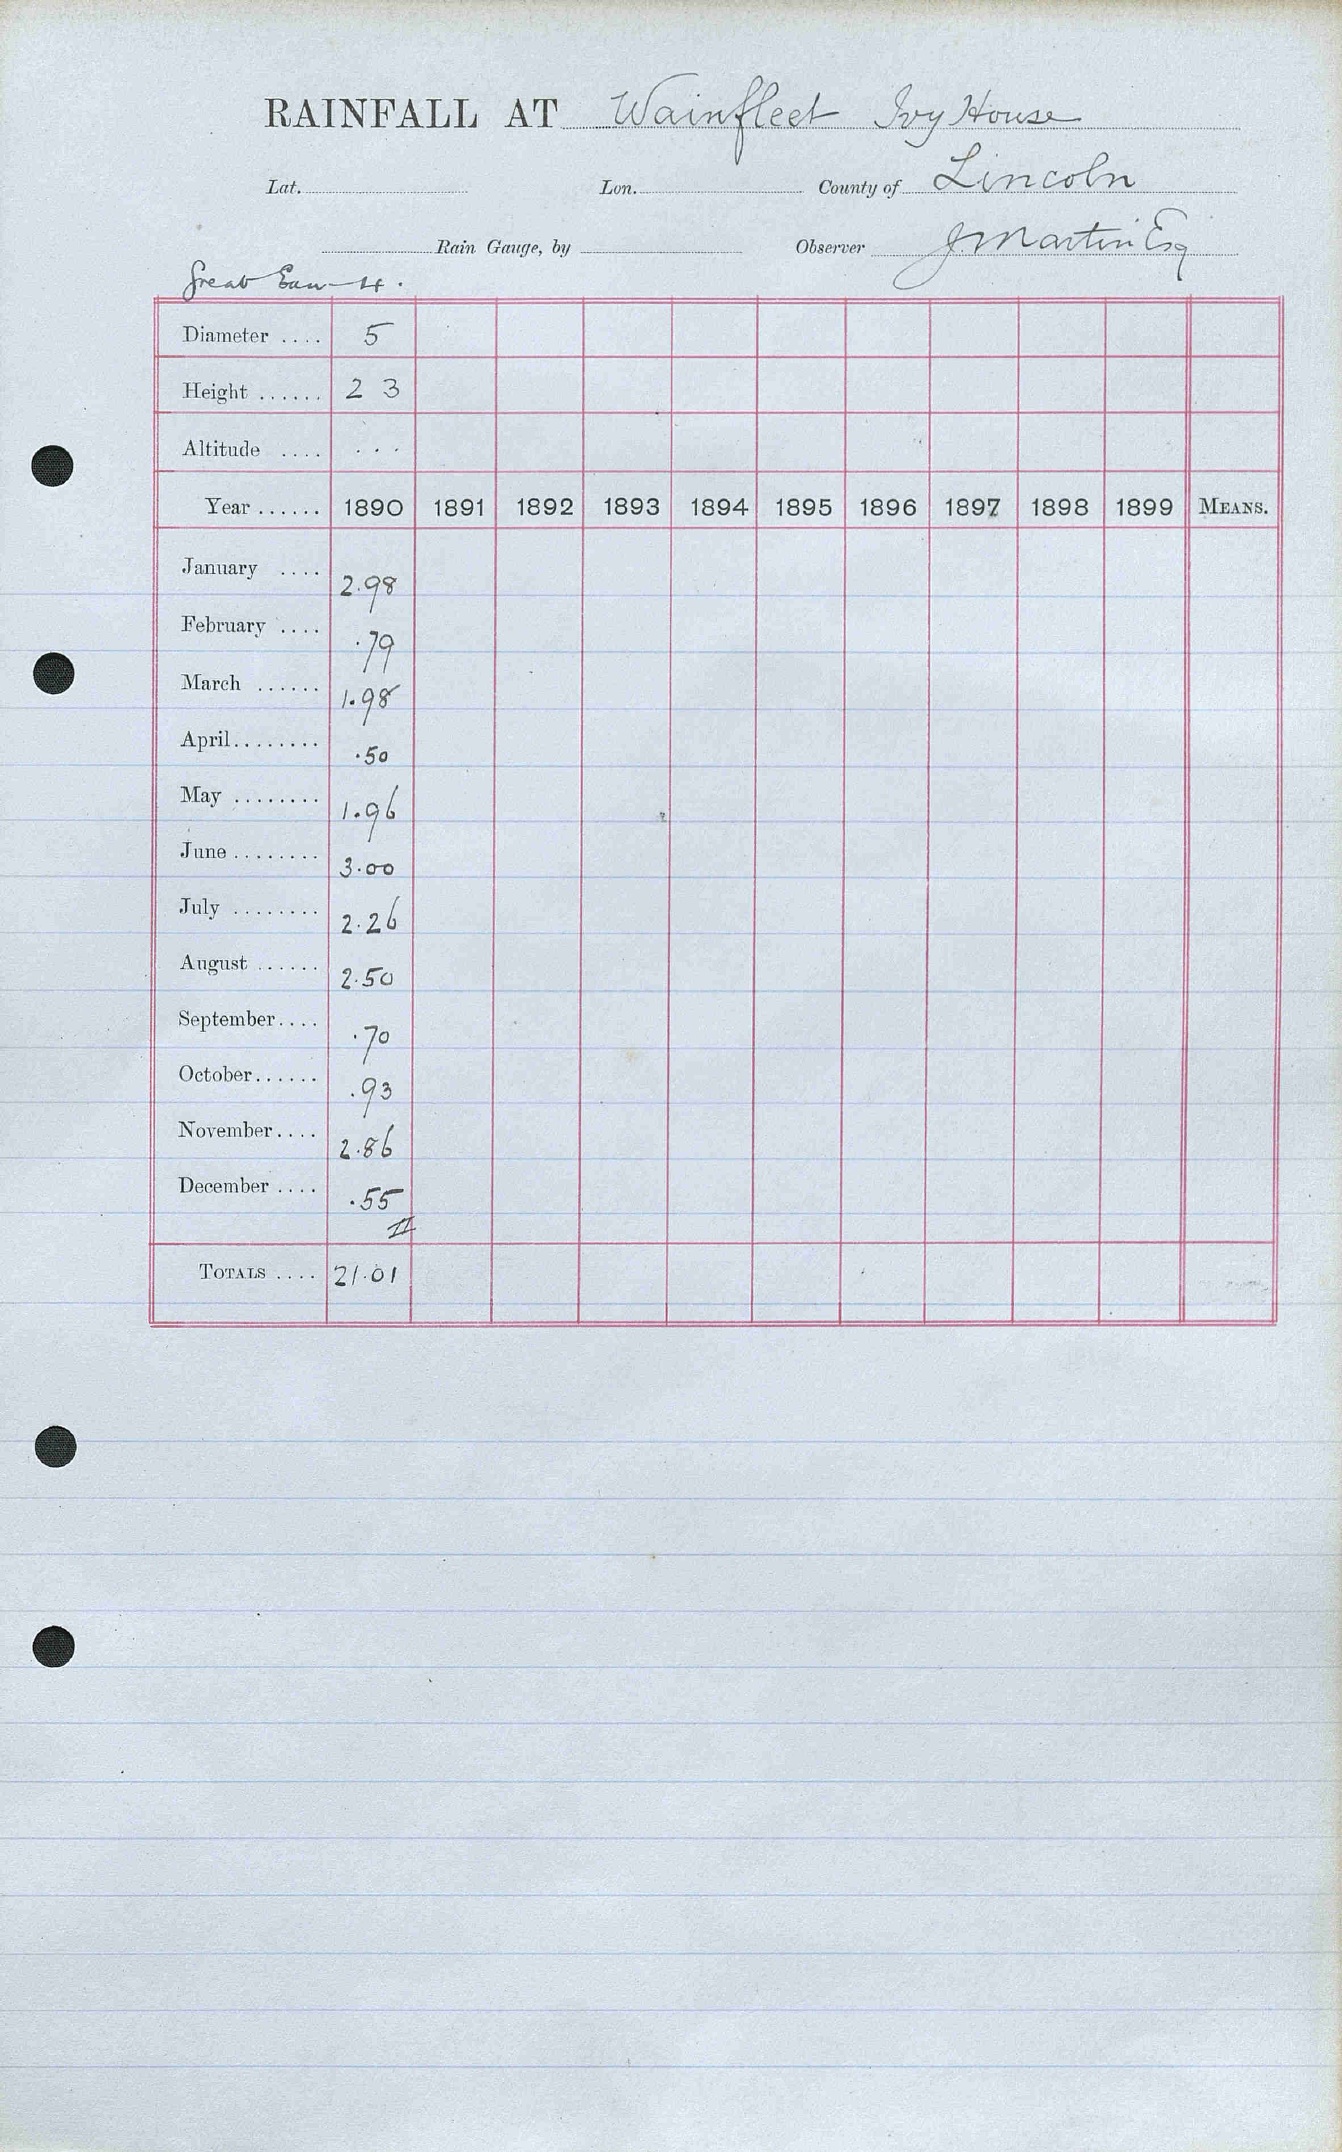 RAINFALL AT Wainfleet Ivy House
Lat. Lon. County of Lincoln
Rain Gauge, by Observer J Martin Esq
Great
Diameter .... 5
Height ...... 2 3
Altitude .... ...
Year ...... 1890 1891 1892 1893 1894 1895 1896 1897 1898 1899 MEANS.
January .... 2.98
February .... .79
March ...... 1.98
April........ .50
May ........ 1.96
June ........ 3.00
July ........ 2.26
August ...... 2.50
September.... .70
October...... .93
November.... 2.86
December .... .55
TOTALS .... 21.01